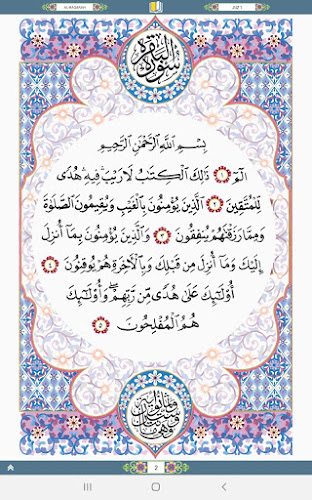 AL-BAQARAH
JUZ 1
سُورَةُ البَقَرَةِ
بِسْمِ اللَّهِ الرَّحْمَٰنِ الرَّحِيمِ
الٓمٓ ۝١ ذَٰلِكَ الْكِتَٰبُ لَا رَيْبَ ۛ فِيهِ ۛ هُدًى
لِّلْمُتَّقِينَ ۝٢ الَّذِينَ يُؤْمِنُونَ بِالْغَيْبِ وَيُقِيمُونَ الصَّلَوٰةَ
وَمِمَّا رَزَقْنَٰهُمْ يُنفِقُونَ ۝٣ وَالَّذِينَ يُؤْمِنُونَ بِمَآ أُنزِلَ
إِلَيْكَ وَمَآ أُنزِلَ مِن قَبْلِكَ وَبِالْءَاخِرَةِ هُمْ يُوقِنُونَ ۝٤
أُو۟لَٰٓئِكَ عَلَىٰ هُدًى مِّن رَّبِّهِمْ ۖ وَأُو۟لَٰٓئِكَ
هُمُ الْمُفْلِحُونَ ۝٥
2